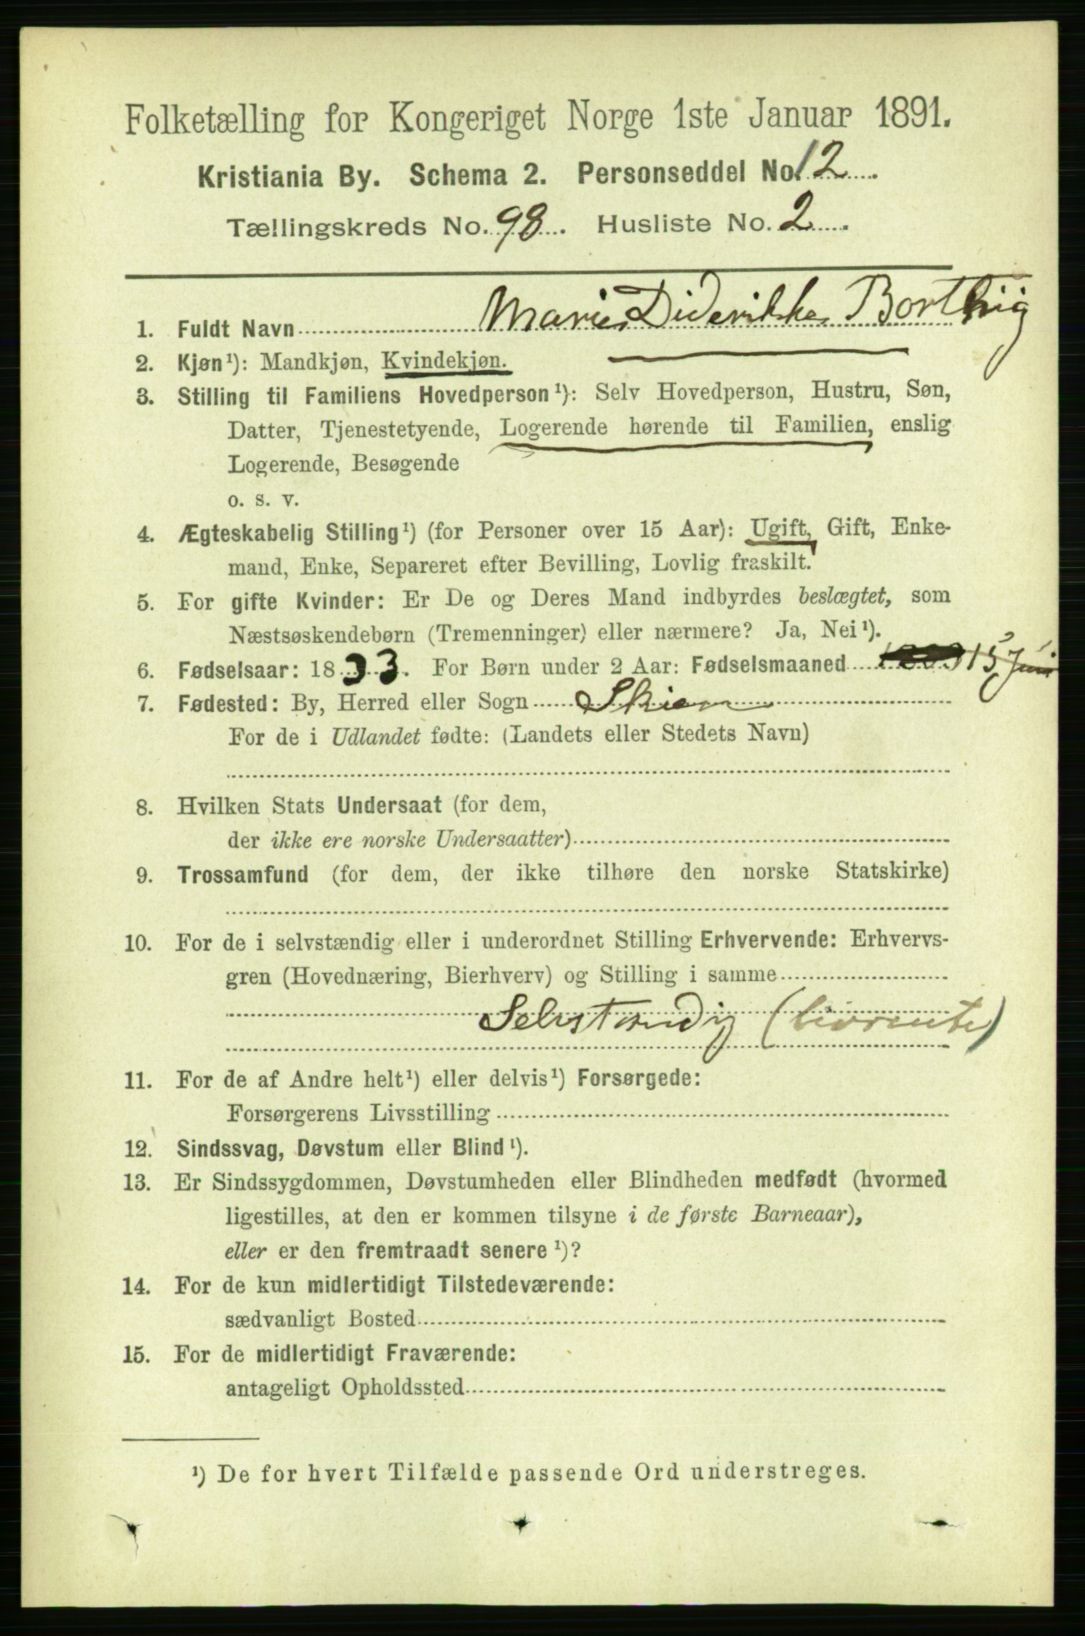 Folketælling for Kongeriget Norge 1ste Januar 1891.
Kristiania By. Schema 2. Personseddel No. 12
Tællingskreds No. 98. Husliste No. 2
1. Fuldt Navn Marie Diderikke Borthig
2. Kjøn¹): Mandkjøn, Kvindekjøn.
3. Stilling til Familiens Hovedperson¹): Selv Hovedperson, Hustru, Søn,
Datter, Tjenestetyende, Logerende hørende til Familien, enslig
Logerende, Besøgende
o. s. v.
4. Ægteskabelig Stilling¹) (for Personer over 15 Aar): Ugift, Gift, Enke-
mand, Enke, Separeret efter Bevilling, Lovlig fraskilt.
5. For gifte Kvinder: Er De og Deres Mand indbyrdes beslægtet, som
Næstsøskendebørn (Tremenninger) eller nærmere? Ja, Nei¹).
6. Fødselsaar: 1833. For Børn under 2 Aar: Fødselsmaaned 15 Juni
7. Fødested: By, Herred eller Sogn Skien
For de i Udlandet fødte: (Landets eller Stedets Navn)
8. Hvilken Stats Undersaat (for dem,
der ikke ere norske Undersaatter)
9. Trossamfund (for dem, der ikke tilhøre den norske Statskirke)
10. For de i selvstændig eller i underordnet Stilling Erhvervende: Erhvervs-
gren (Hovednæring, Bierhverv) og Stilling i samme
Selvstændig (Livrente)
11. For de af Andre helt¹) eller delvis¹) Forsørgede:
Forsørgerens Livsstilling
12. Sindssvag, Døvstum eller Blind¹).
13. Er Sindssygdommen, Døvstumheden eller Blindheden medfødt (hvormed
ligestilles, at den er kommen tilsyne i de første Barneaar),
eller er den fremtraadt senere¹)?
14. For de kun midlertidigt Tilstedeværende:
sædvanligt Bosted
15. For de midlertidigt Fraværende:
antageligt Opholdssted
¹) De for hvert Tilfælde passende Ord understreges.